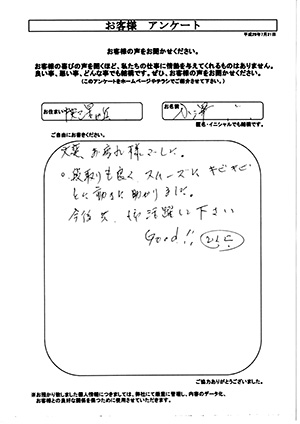 お客様 アンケート
平成29年7月31日
お客様の声をお聞かせください。
お客様の喜びの声を聞くほど、私たちの仕事に情熱を与えてくれるものはありません。
良い事、悪い事、どんな事でも結構です。ぜひ、お客様の声をお聞かせください。
(このアンケートをホームページやチラシでご紹介させて下さい。)
お住まい
お名前 小澤
匿名・イニシャルでも結構です。
ご自由にお書きください。
大変、お疲れ様でした。
段取りも良く スムーズに キビキビ
と動き 助かりました。
今後共、御活躍して下さい
Good!!
ご協力ありがとうございました。
※お預かり致しました個人情報につきましては、弊社にて厳重に管理し、内容のデータ化、
お客様との良好な関係を保つために使用させていただきます。